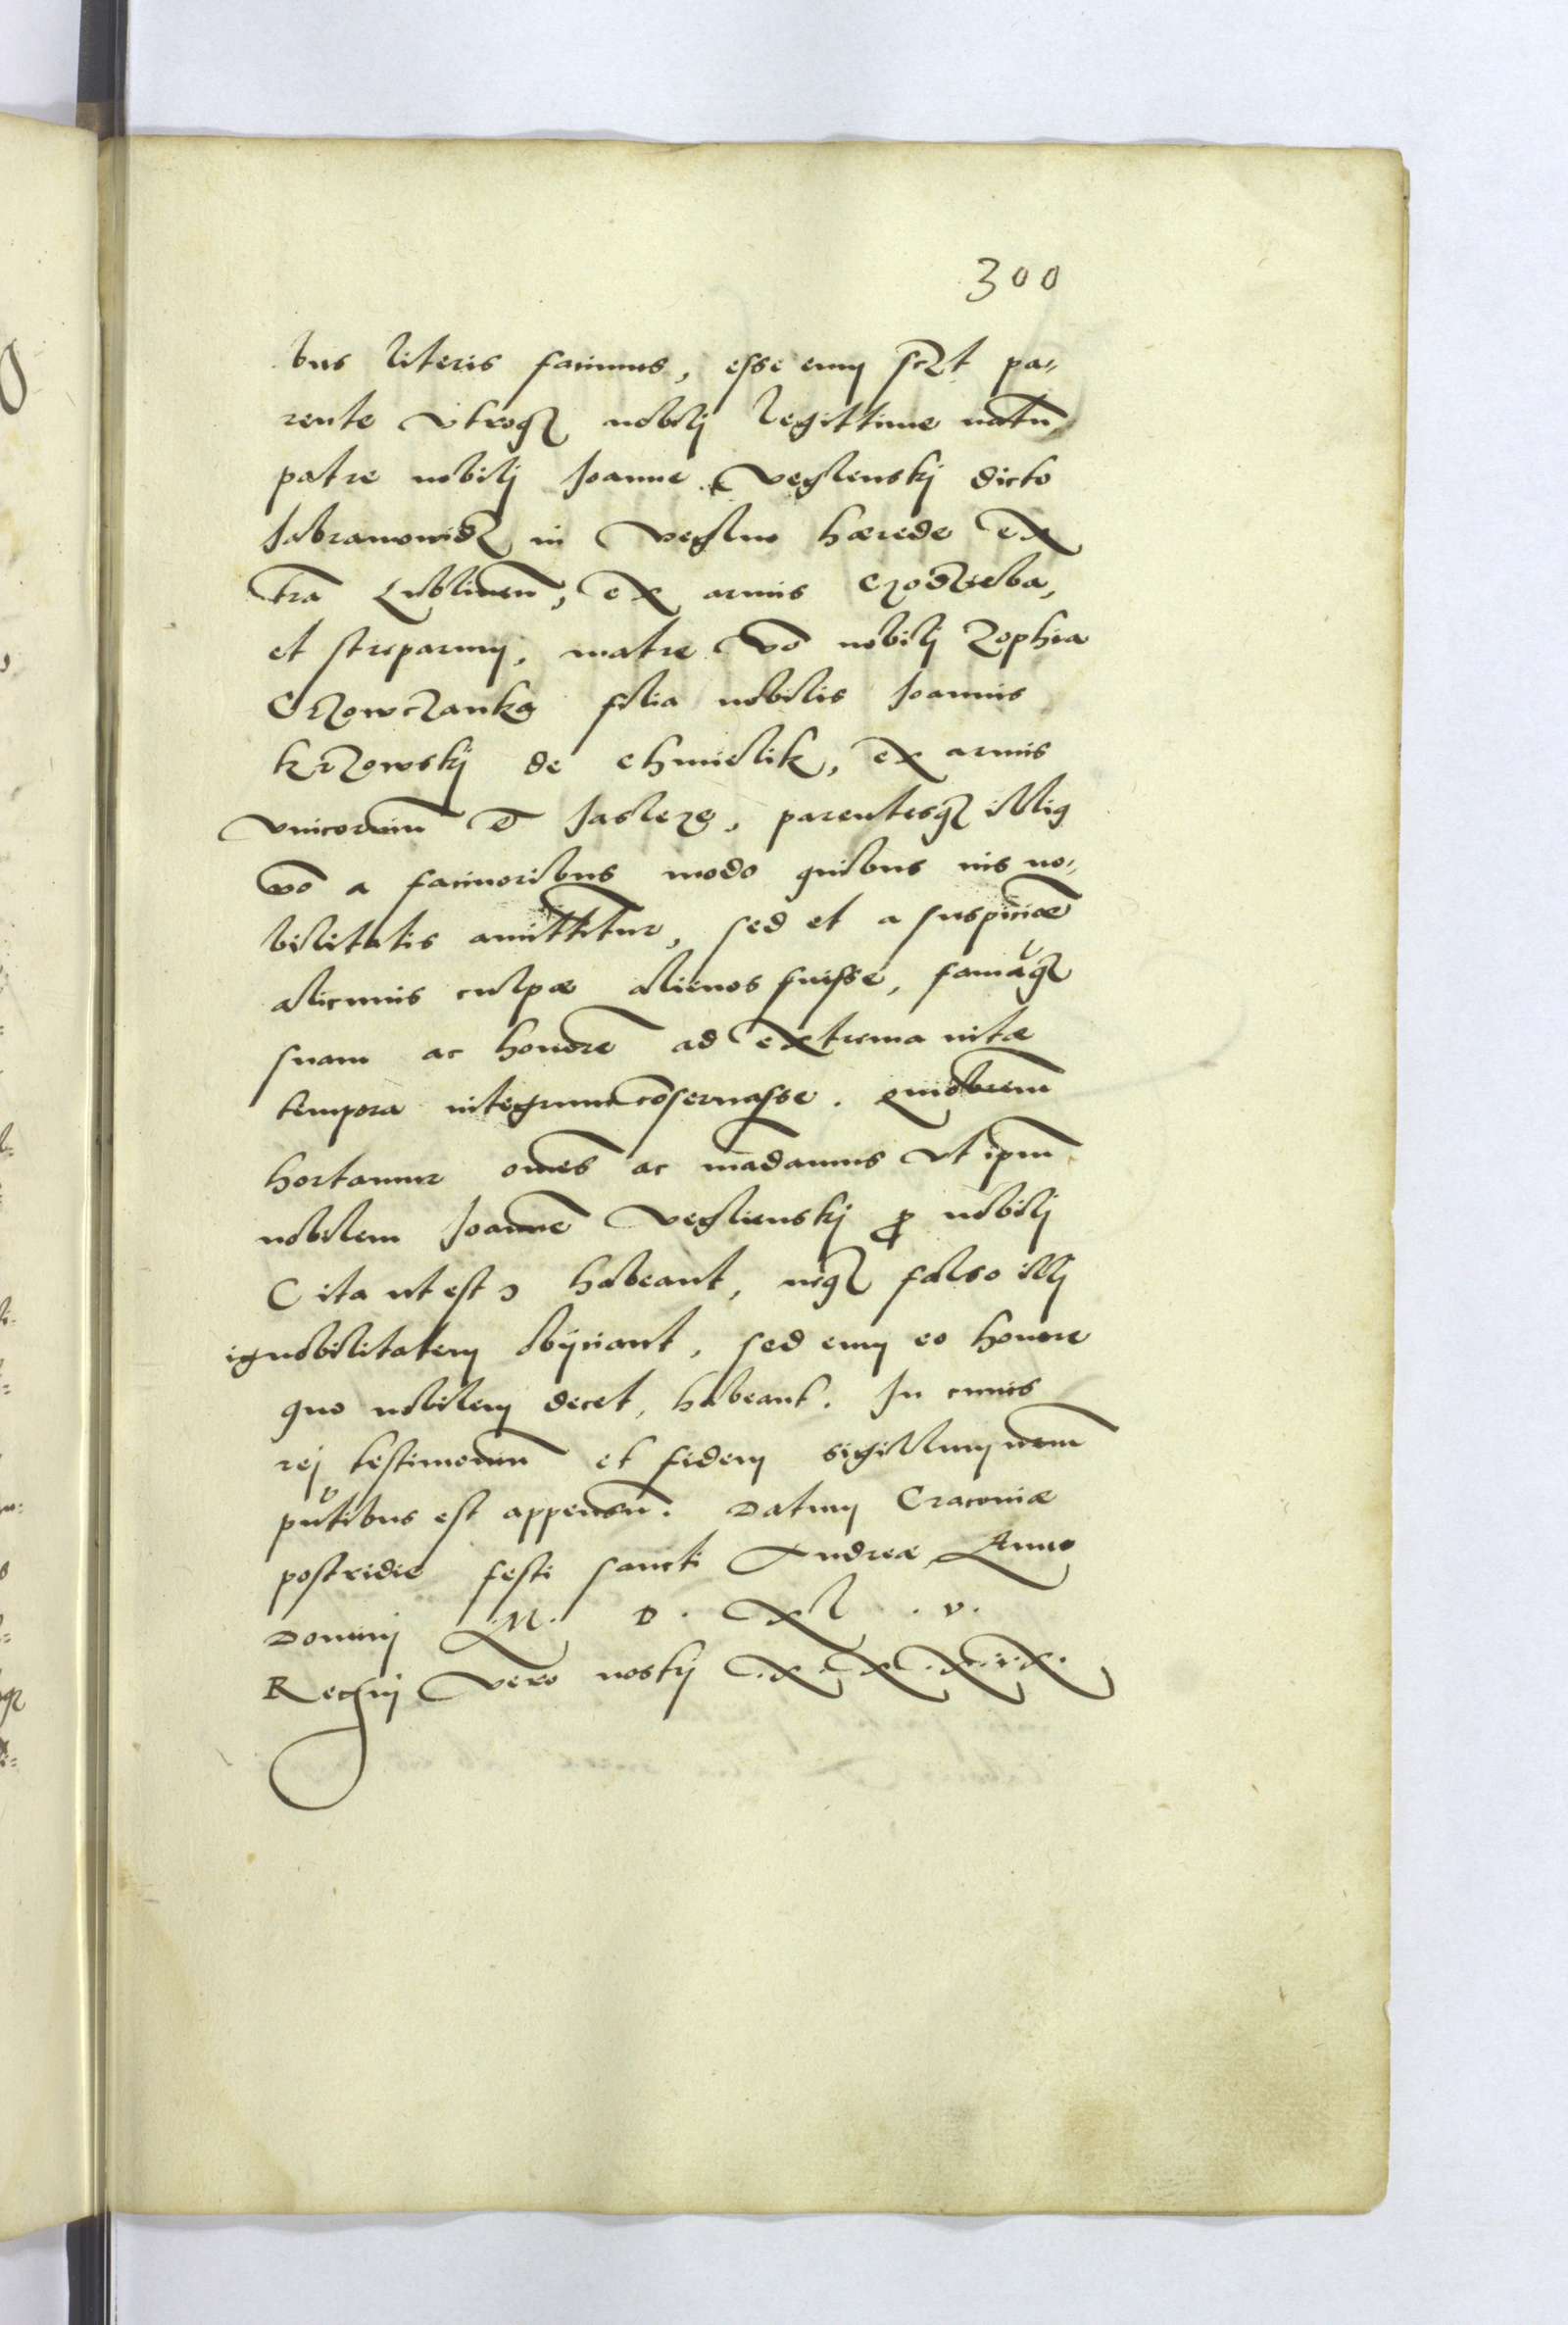 300
bus literis facimus, esse eum sczt pa-
rente vtroq3 nobilj legittime natũ
patre nobilj Joanne Veglenskj dicto
Jabramowicz in Veglno hærede ex
trã Lublinen̄, ex armis
et streparum, matre vō nobilj Zophia
Crzowczanka filia nobilis Joannis
Krzowskj de Chmielik, ex armis
vnicornium et Jasleza, parentesq3 illiꝰ
nō a facinoribus modo quibus ius no-
bilitatis amittitur, sed et a suspicioē
alicuius culpæ alienos fuisse, famāq3
suam ac honorē ad extrema uitæ
tempora integrum cōseruasse. Quiobrem
hortamur om̄es ac mādamus vt ip̄m
nobilem Joannē Veglienskj ꝓ nobilj
( ita ut est ) habeant, neq3 falso illj
ignobilitatem obijciant, sed eum eo honore
quo nobilem decet, habeant. In cuius
rej testimoniũ et fidem sigillum nr̄m
pn̄tibus est appensũ. Datum Cracouiæ
postridie festi sancti Andreæ Anno
Dominj M. D. XL. v.
Regnj vero nostrj